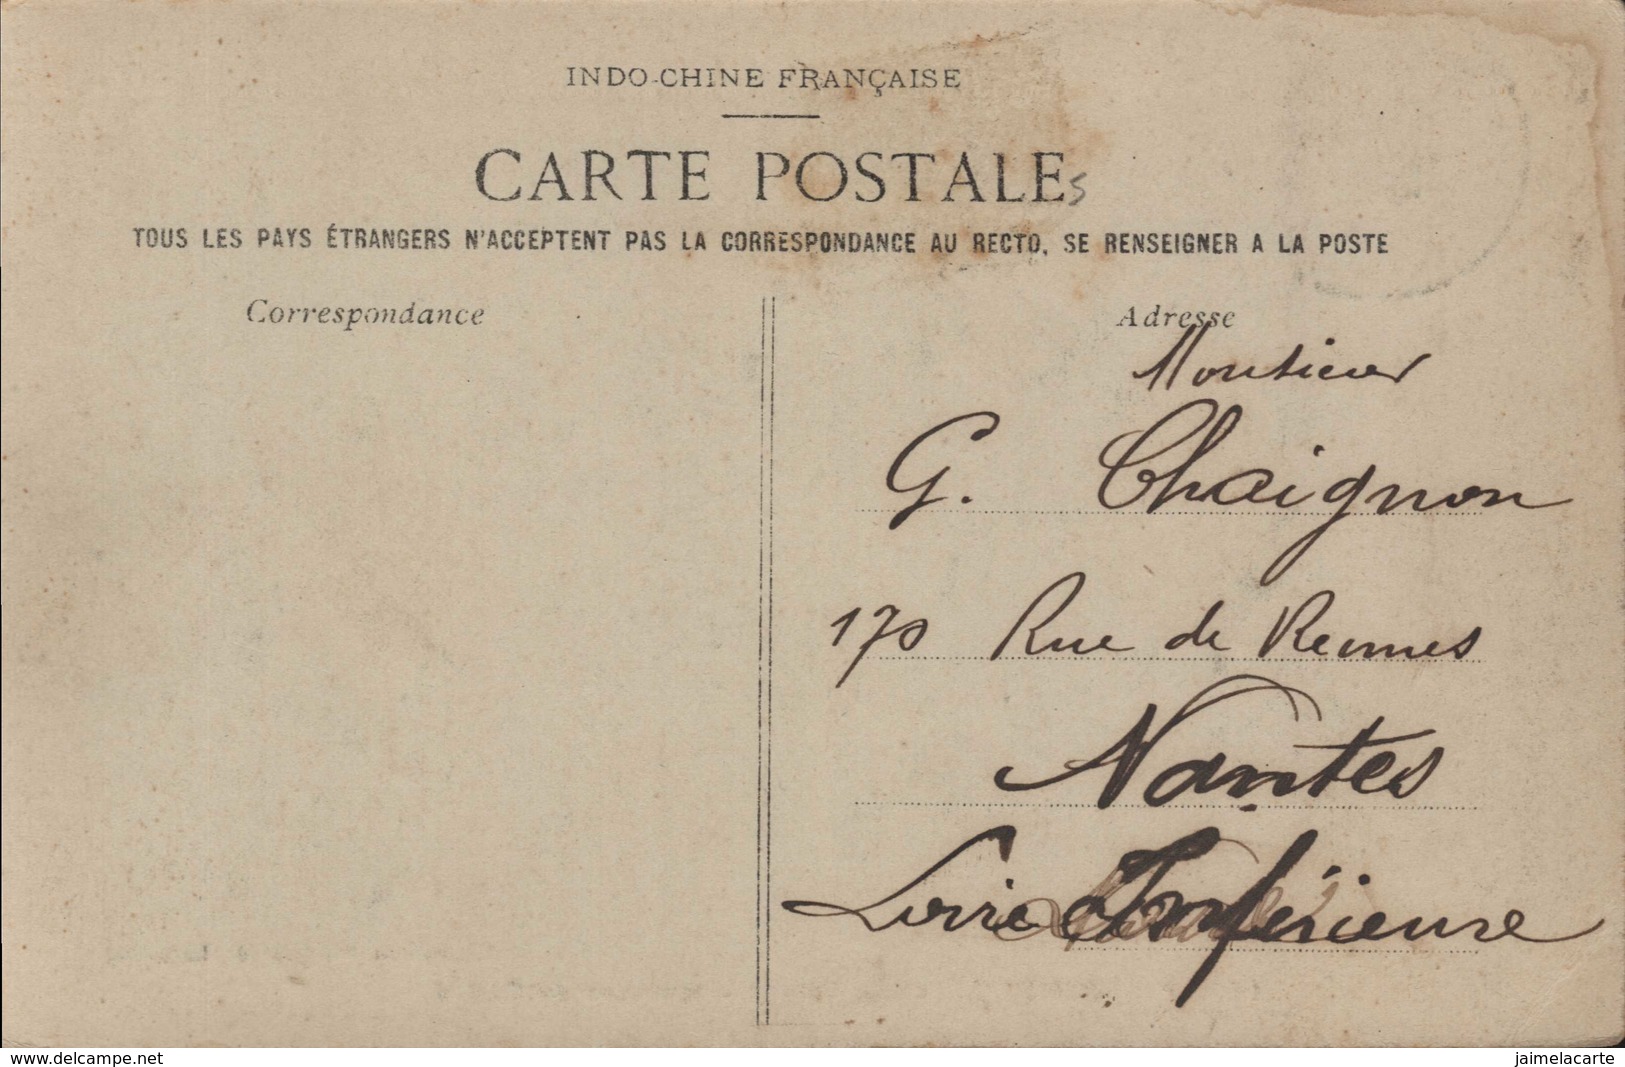 INDO-CHINE FRANÇAISE
CARTE POSTALE
5
TOUS LES PAYS ÉTRANGERS N'ACCEPTENT PAS LA CORRESPONDANCE AU RECTO, SE RENSEIGNER A LA POSTE
Correspondance
Adresse
Monsieur
G. Chaignon
170 Rue de Rennes
Nantes
Loire Inférieure
www.delcampe.net
jaimelacarte